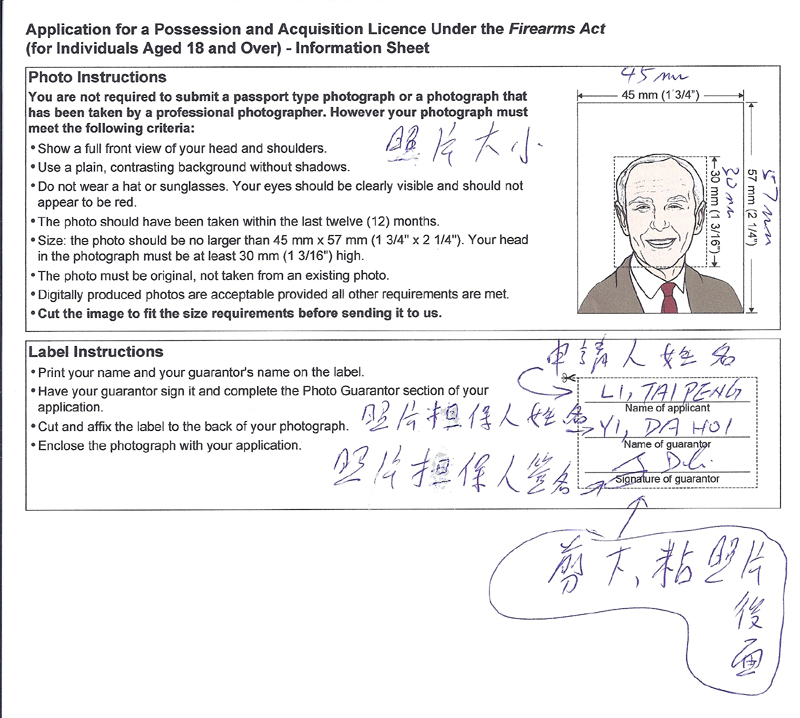 Application for a Possession and Acquisition Licence Under the Firearms Act
(for Individuals Aged 18 and Over) - Information Sheet
Photo Instructions
You are not required to submit a passport type photograph or a photograph that
has been taken by a professional photographer. However your photograph must
meet the following criteria:
• Show a full front view of your head and shoulders.
• Use a plain, contrasting background without shadows.
• Do not wear a hat or sunglasses. Your eyes should be clearly visible and should not
appear to be red.
• The photo should have been taken within the last twelve (12) months.
• Size: the photo should be no larger than 45 mm x 57 mm (1 3/4" x 2 1/4"). Your head
in the photograph must be at least 30 mm (1 3/16") high.
• The photo must be original, not taken from an existing photo.
• Digitally produced photos are acceptable provided all other requirements are met.
• Cut the image to fit the size requirements before sending it to us.
照片大小
45 mm
45 mm (1 3/4")
30 mm (1 3/16")
30 mm
57 mm (2 1/4")
57 mm
Label Instructions
• Print your name and your guarantor's name on the label.
• Have your guarantor sign it and complete the Photo Guarantor section of your
application.
• Cut and affix the label to the back of your photograph.
• Enclose the photograph with your application.
申請人姓名
LI, TAIPENG
Name of applicant
照片担保人姓名
YI, DA HOI
Name of guarantor
照片担保人签名
Signature of guarantor
剪下,粘照片
後
面